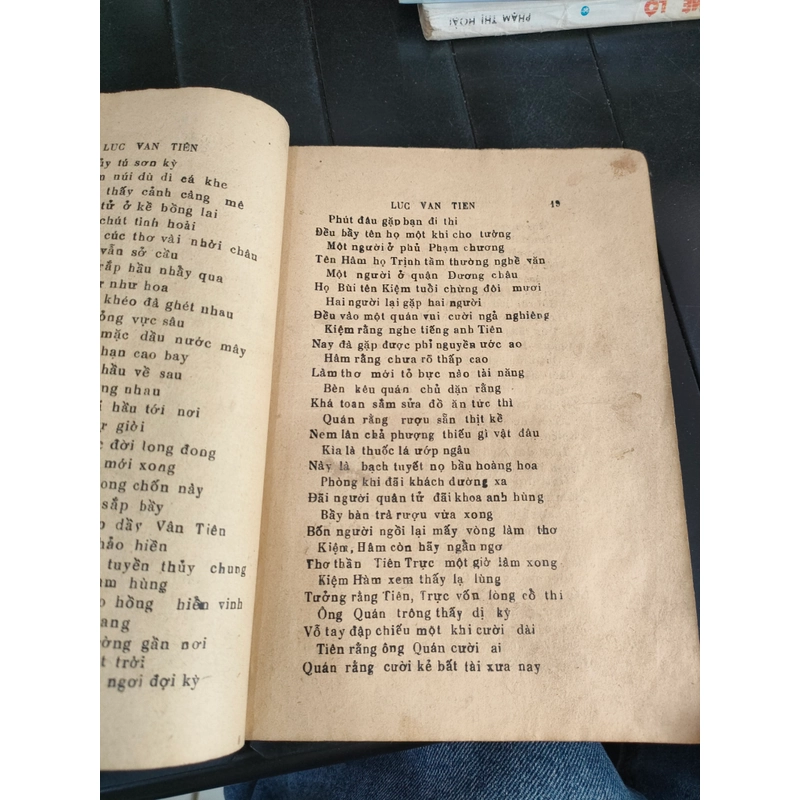 PHẠM THỊ HOÀI
LUC VAN TIÊN
ủy tú sơn kỳ
núi dù di cá khe
thấy cảnh càng mê
tử ở kề bồng lai
chút tình hoài
cúc thơ vài nhởi châu
vẫn sở cầu
rắp hầu nhảy qua
như hoa
khéo đả ghét nhau
vực sâu
mặc dầu nước mây
hạn cao bay
hầu về sau
ng nhau
hầu tới nơi
giỏi
đời long đong
mới xong
ong chốn này
sắp bầy
dầy Vân Tiên
hảo hiền
tuyền thủy chung
m hùng
hồng hiền vinh
ang
ường gần nơi
t trời
ngơi đợi kỳ
LUC VAN TIEN 19
Phút đâu gặp bạn đi thi
Đều bầy tên họ một khi cho tường
Một người ở phủ Phạm chương
Tên Hâm họ Trịnh tầm thường nghề văn
Một người ở quận Dương châu
Họ Bùi tên Kiệm tuổi chừng đôi mươi
Hai người lại gặp hai người
Đều vào một quán vui cười ngả nghiêng
Kiệm rằng nghe tiếng anh Tiên
Nay đả gặp được phỉ nguyền ước ao
Hâm rằng chưa rõ thấp cao
Làm thơ mới tỏ bực nào tài năng
Bèn kêu quán chủ dặn rằng
Khá toan sắm sửa đồ ăn tức thì
Quán rằng rượu sẵn thịt kề
Nem lân chả phượng thiếu gì vật đâu
Kìa là thuốc lá ướp ngâu
Nầy là bạch tuyết nọ bầu hoàng hoa
Phòng khi đãi khách đường xa
Đãi người quân tử đãi khoa anh hùng
Bầy bàn trà rượu vừa xong
Bốn người ngồi lại mấy vòng làm thơ
Kiệm, Hâm còn hãy ngẩn ngơ
Thơ thần Tiên Trực một giờ làm xong
Kiệm Hàm xem thấy lạ lùng
Tưởng rằng Tiên, Trực vốn lòng cổ thi
Ông Quán trông thấy dị kỳ
Vỗ tay đập chiếu một khi cười dài
Tiên rằng ông Quán cười ai
Quán rằng cười kẻ bất tài xưa nay